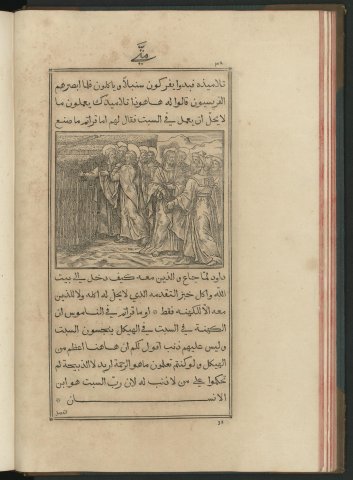 متى
تلاميذه فبدوا يفركون سنبلا وياكلون فلما ابصرهم
الفريسيون قالوا له هاهوذا تلاميذك يعملون ما
لا يحل ان يعمل في السبت فقال لهم اما قراتم ما صنع
داود لما جاع والذين معه كيف دخل الى بيت
الله واكل خبز التقدمه الذي لا يحل له اكله ولا للذين
معه الا للكهنه فقط او ما قراتم في الناموس ان
الكهنة في السبت في الهيكل ينجسون السبت
وليس عليهم ذنب اقول لكم ان هاهنا اعظم من
الهيكل ولو كنتم تعلمون ما هو الرحمة اريد لا الذبيحة لم
تحكموا على من لا ذنب له لان رب السبت هو ابن
الانسان
الفصل